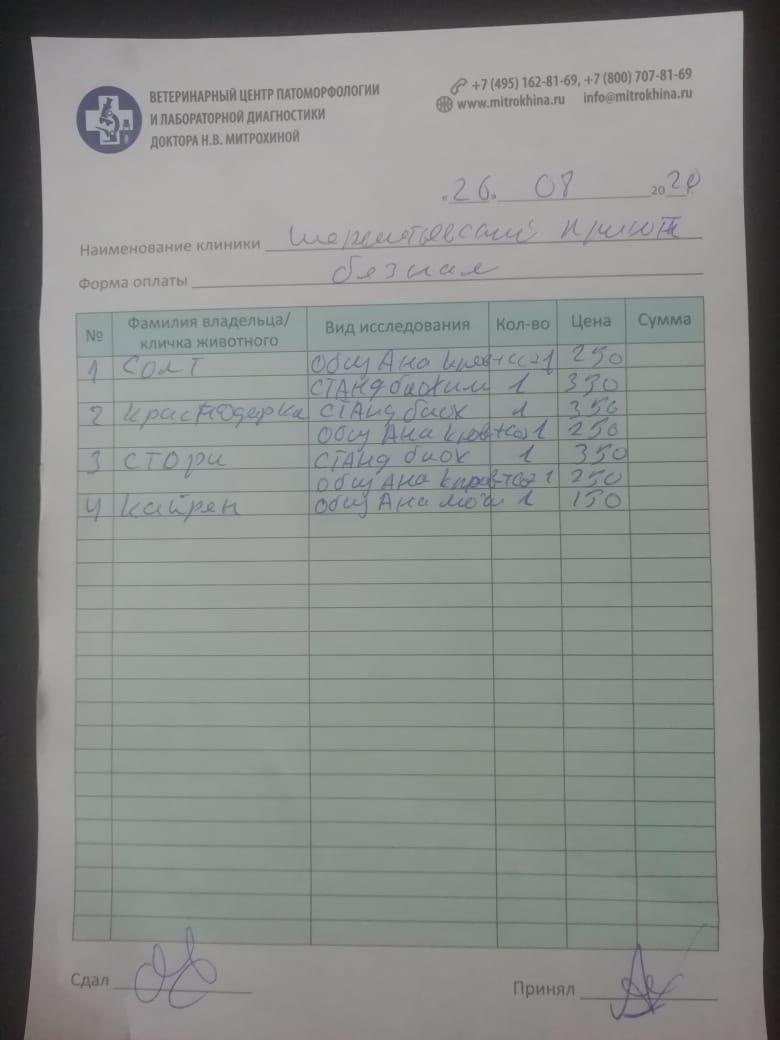 ВЕТЕРИНАРНЫЙ ЦЕНТР ПАТОМОРФОЛОГИИ
И ЛАБОРАТОРНОЙ ДИАГНОСТИКИ
ДОКТОРА Н.В. МИТРОХИНОЙ
+7 (495) 162-81-69, +7 (800) 707-81-69
www.mitrokhina.ru info@mitrokhina.ru
"26" 08 2020
Наименование клиники Шереметьевский приют
Форма оплаты безнал
№ Фамилия владельца/ кличка животного Вид исследования Кол-во Цена Сумма
1 Солт Общ Ана кров+соэ 1 250
СТАНД биохим 1 350
2 Краснодарка СТАНД биох 1 350
Общ Ана кров+соэ 1 250
3 СТОРИ СТАНД биох 1 350
Общ Ана кров+соэ 1 250
4 Кайрен Общ Ана мочи 1 150
Сдал
Принял